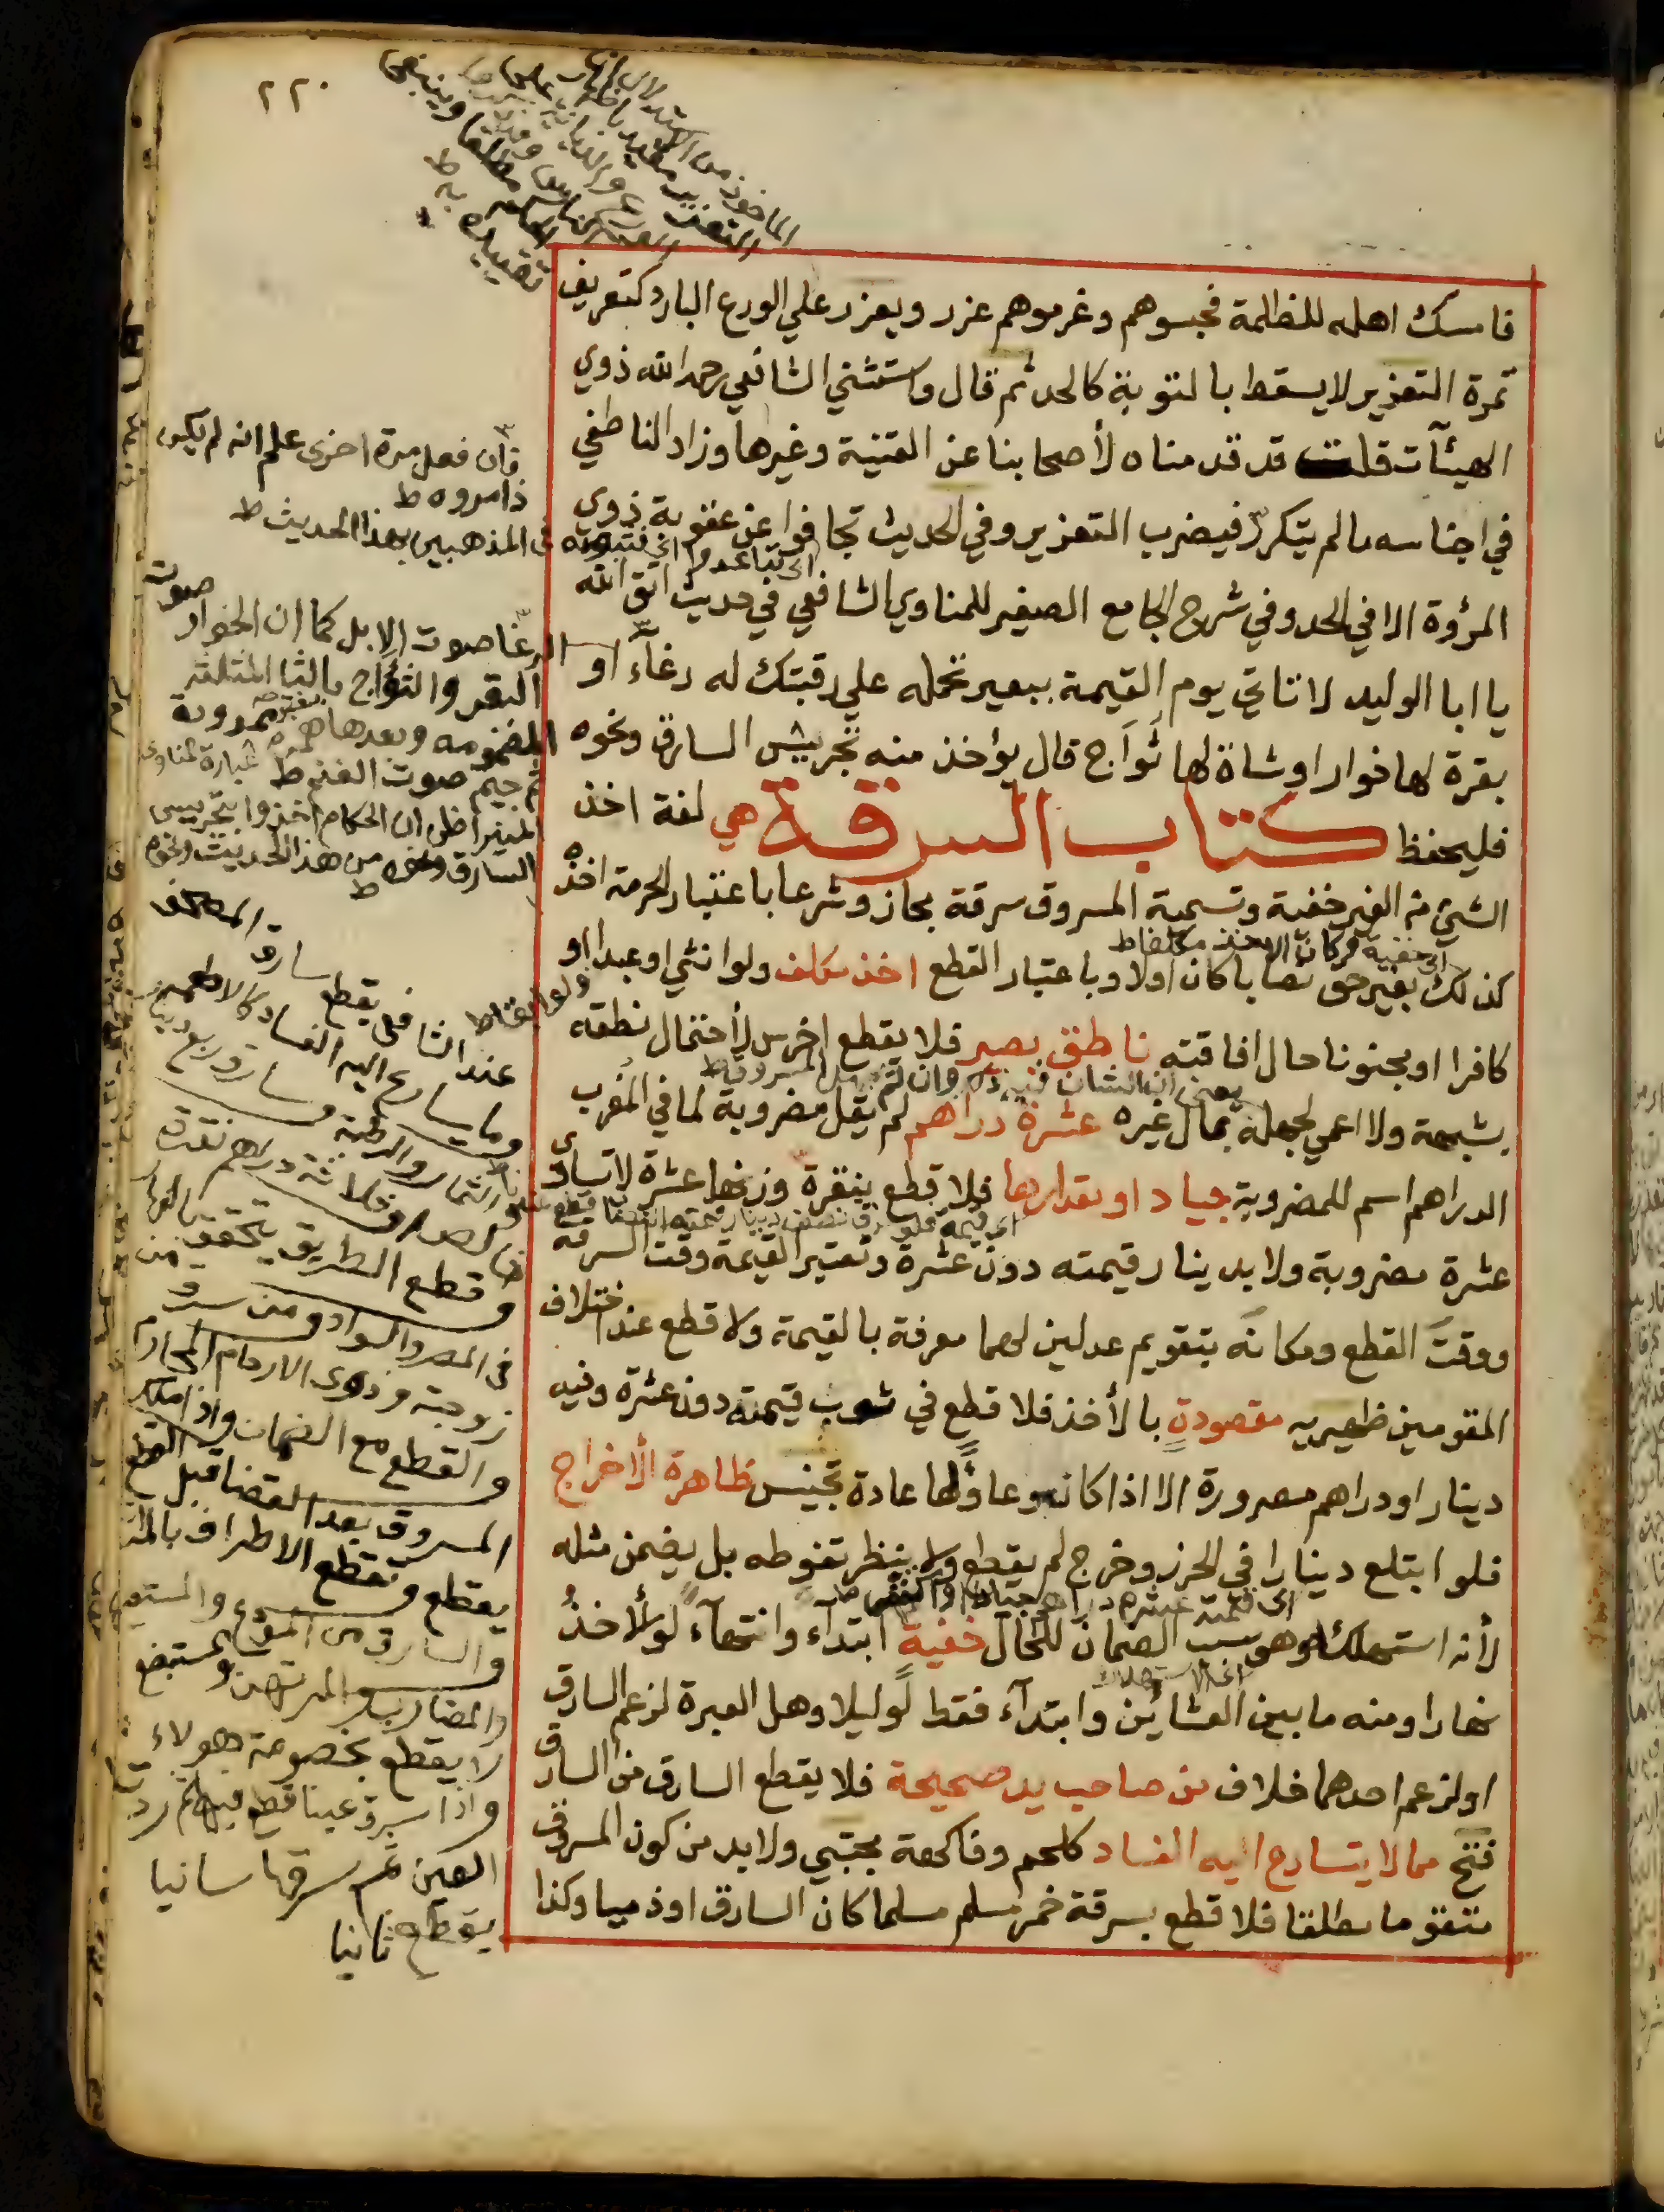 ٢٢٠
فامسك اهله للظلمة فحبسوهم وغرموهم عزر ويعزر علي الورع البارد كتعريف
تمرة التعزير لا يسقط بالتوبة كالحد ثم قال واستثني الشافعي رحمه الله ذوي
الهيئآت قلت قد قدمناه لأصحابنا عن القنية وغيرها وزاد الناطفي
في اجناسه مالم يتكرر فيضرب التعزير وفي الحديث تجافوا عن عقوبة ذوي
المرؤة الا في الحد وفي شرح الجامع الصغير للمناوي الشافعي في حديث اتق الله
يا ابا الوليد لا تاتي يوم القيمة ببعير تحمله علي رقبتك له رغآء او
بقرة لها خوار او شاة لها ثواج قال يؤخذ منه تجريس السارق ونحوه
فليحفظ كتاب السرقة هي لغة اخذ
الشيئ من الغير خفية وتسمية المسروق سرقة مجاز وشرعا باعتبار الحرمة اخذه
كذلك بغير حق نصابا كان اولا وباعتبار القطع اخذ مكلف ولو انثي او عبدا او
كافرا او مجنونا حال افاقته ناطق بصير فلا يقطع اخرس لأحتمال نطقه
بشبهة ولا اعمي لجهله بمال غيره عشرة دراهم لم يقل مضروبة لما في المغرب
الدراهم اسم للمضروبة جياد او مقدارها فلا قطع بنقرة وزنها عشرة لا تساوي
عشرة مضروبة ولا بدينار قيمته دون عشرة وتعتبر القيمة وقت السرقة
ووقت القطع ومكانه بتقويم عدلين لهما معرفة بالقيمة ولا قطع عند اختلاف
المقومين ظهيريه مقصودة بالأخذ فلا قطع في ثوب قيمته دون عشرة وفيه
دينار او دراهم مصرورة الا اذا كان وعاء لها عادة تجنيس ظاهرة الأخراج
فلو ابتلع دينارا في الحرز وخرج لم يقطع ولا ينتظر تغوطه بل يضمن مثله
لأنه استهلكه وهو سبب الضمان للحال خفية ابتدآء وانتهآء لو الأخذ
نهارا ومنه ما بين العشائين وابتدآء فقط لو ليلا وهل العبرة لزعم السارق
او لزعم احدهما خلاف من صاحب يد صحيحة فلا يقطع السارق من السارق
فتح مما لا يتسارع اليه الفساد كلحم وفاكهة مجتبي ولا بد من كون المسروق
متقوما مطلقا فلا قطع بسرقة خمر مسلم مسلما كان السارق او ذميا وكذا
فان فعل مرة اخرى علم انه لم يكن
ذا مروه ط
في المذهبين بهذا الحديث ط
الرغا صوت الابل كما ان الخوار صوت
البقر والثؤاج بالثا المثلثه
المضمومه وبعدها همزة ممدودة
ثم جيم صوت الغنم ط
المنير اظن ان الحكام اخذوا بتجريس
السارق ونحوه من هذا الحديث ونحوه ط
عند الشافعي يقطع سارق المصحف
وما يسارع اليه الفساد كالاطعمة
وقطع الطريق يتحقق
في المصر والسواد ومن سرق من
زوجته وذوى الارحام المحارم
والقطع مع الضمان واذا ملك
المسروق بعد القضا قبل القطع
يقطع وتقطع الاطراف
والسارق من المودع والمستعير
والمضارب والمرتهن والمستبضع
لا يقطع بخصومة هولاء
واذا سرق عينا قطع فيها ثم رد
العين ثم سرقها سانيا
يقطع ثانيا